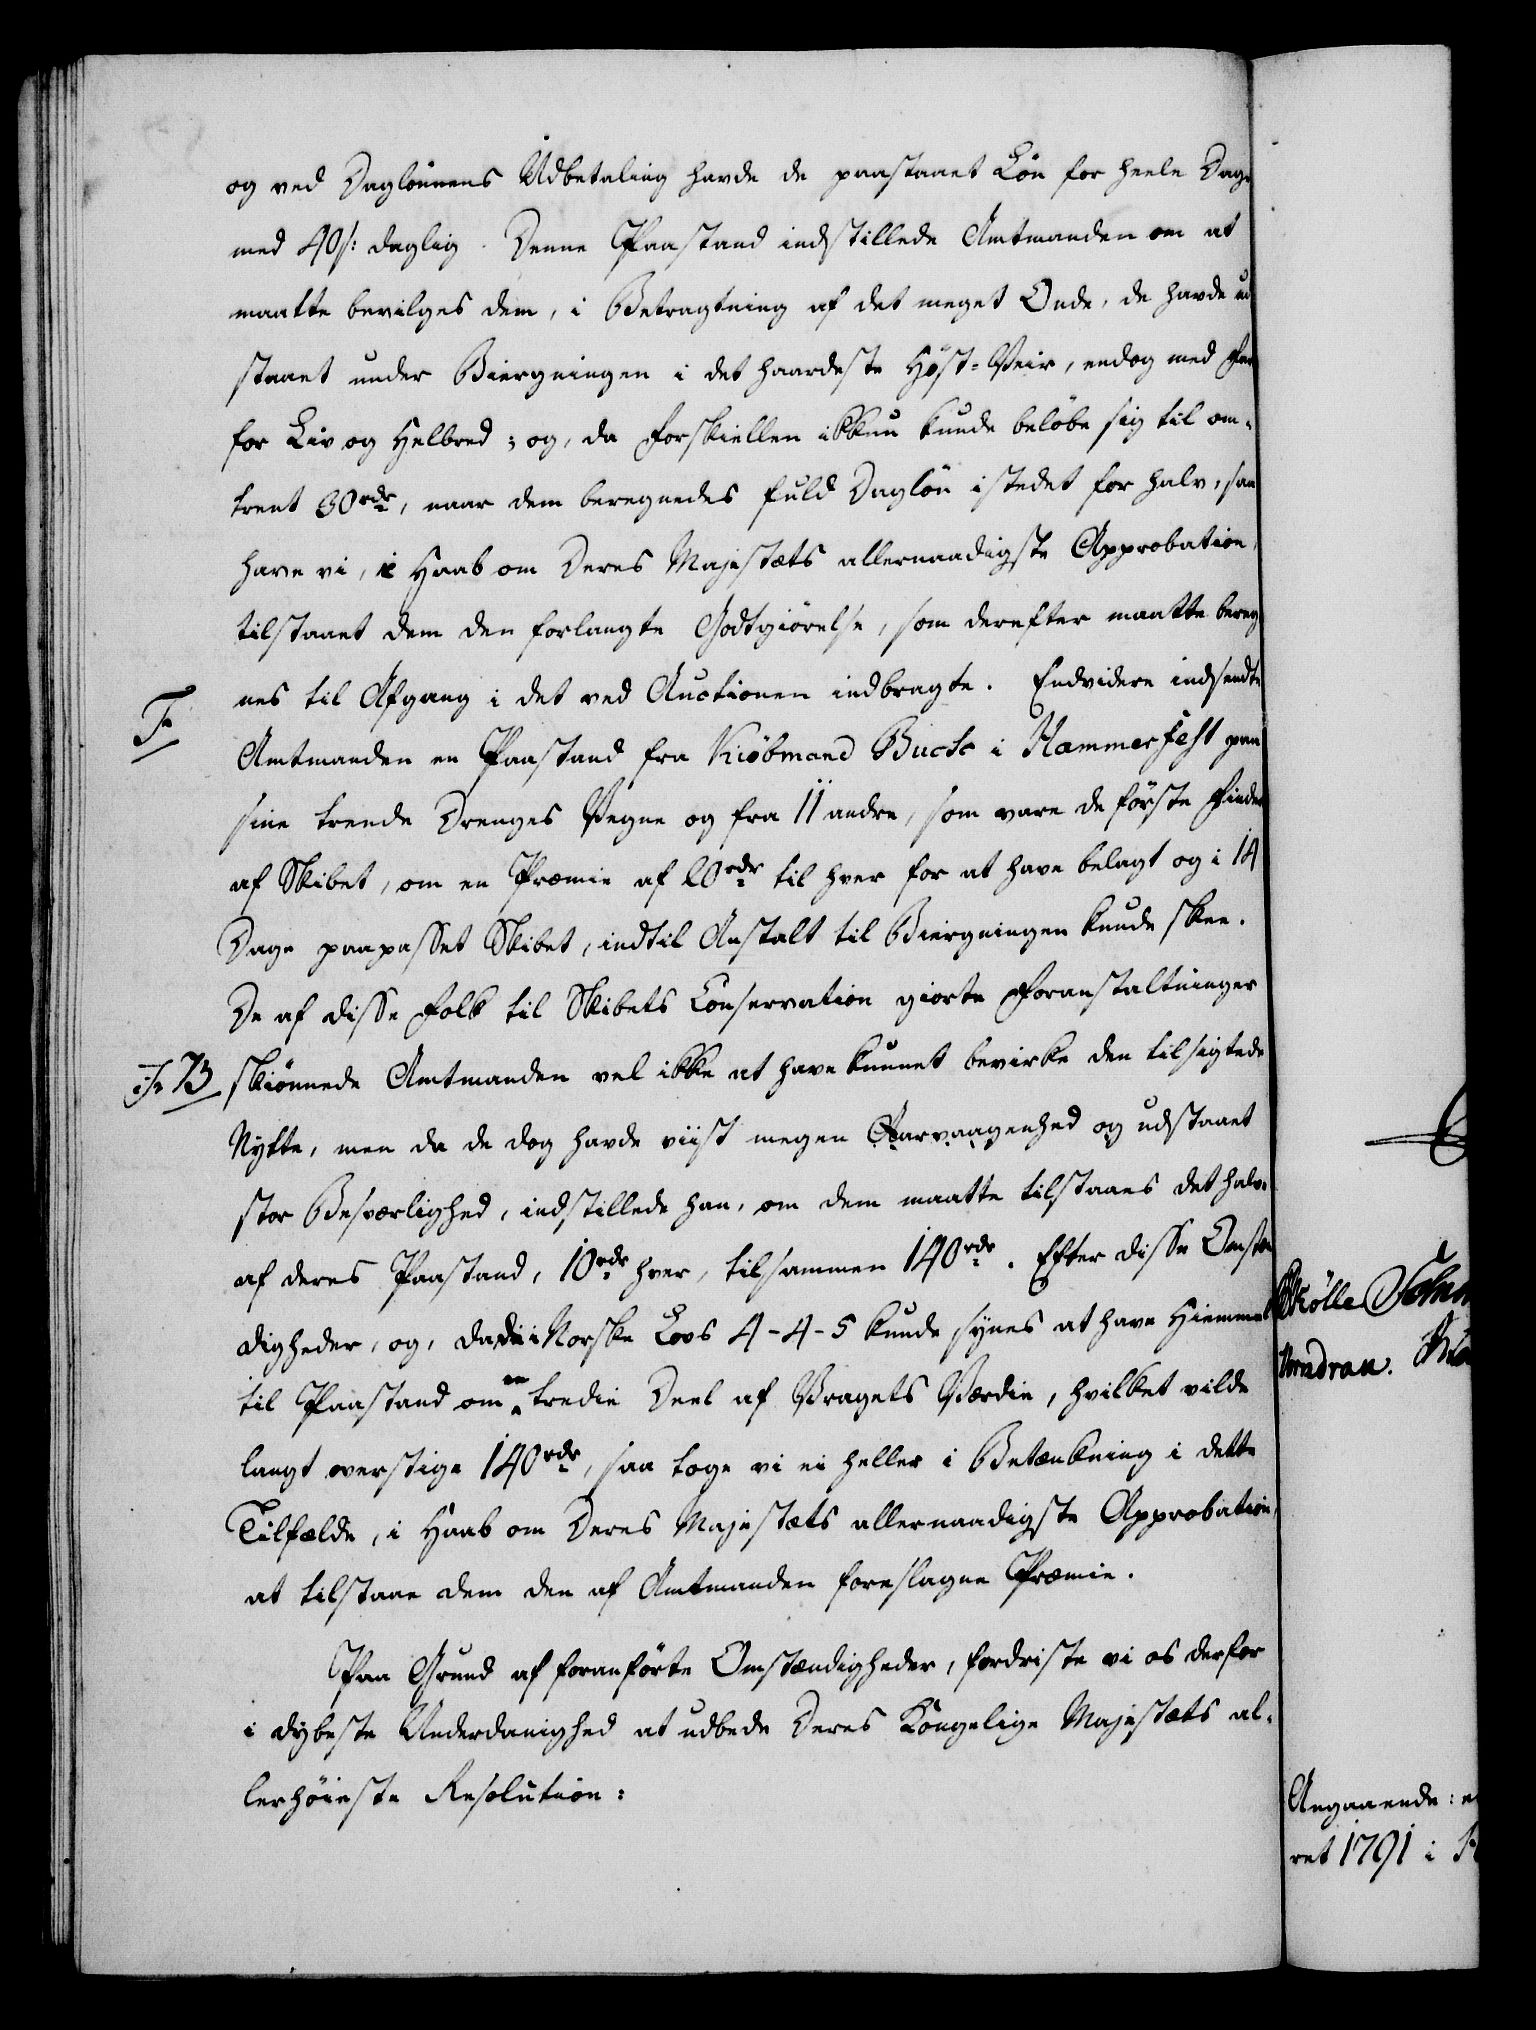 og ved Daglönnens Udbetaling havde de paastaaet Lön for heele Dage
med 40 s: daglig. Denne Paastand indstillede Amtmanden om at
maatte bevilges dem, i Betragtning af det meget Onde, de havde ud
staaet under Biergningen i det haardeste Höst-Veir, endog med Far
for Liv og Helbred; og, da Forskiellen ikkun kunde belöbe sig til om-
trent 30 rdr, naar dem beregnedes fuld Daglön istedet for halv, saa
have vi, i Haab om Deres Majestæts allernaadigste Approbation,
tilstaaet dem den forlangte Godtgiörelse, som derefter maatte bereg
nes til Afgang i det ved Auctionen indbragte. Endvidere indsendte
F.
Amtmanden en Paastand fra Kiöbmand Buck i Hammerfest paa
sine trende Drenges Vegne og fra 11 andre, som vare de förste Finder
af Skibet, om en Præmie af 20 rdr til hver for at have belagt og i 14
Dage paapasset Skibet, indtil Anstalt til Biergningen kunde skee.
De af disse Folk til Skibets Conservation giorte Foranstaltninger
skiönnede Amtmanden vel ikke at have kunnet bevirke den tilsigtede
Nytte, men da de dog havde viist megen Aarvaagenhed og udstaaet
stor Besværlighed, indstillede han, om dem maatte tilstaaes det halve
af deres Paastand, 10 rdr hver, tilsammen 140 rdr. Efter disse Omstæn
digheder, og, da de i Norske Lovs 4-4-5 kunde synes at have Hiemmel
til Paastand om en tredie Deel af Vragets Værdie, hvilket vilde
langt overstige 140 rdr, saa toge vi ei heller i Betænkning i dette
Tilfælde, i Haab om Deres Majestæts allernaadigste Approbation,
at tilstaae dem den af Amtmanden foreslagne Præmie.
Paa Grund af foranförte Omstændigheder, fordriste vi os derfor
i dybeste Underdanighed at udbede Deres Kongelige Majestæts al-
lerhöieste Resolution:
Angaaende: e
ret 1791 i